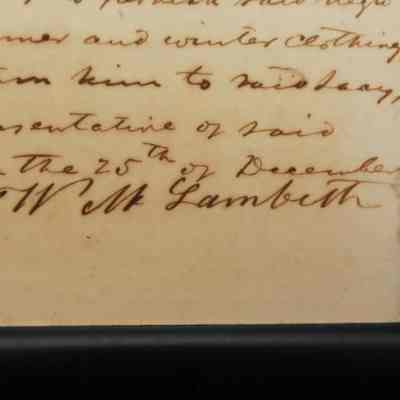 said negro
mer and winter clothing
him to said Lacy,
sentative of said
the 25th of December
W M Lambeth